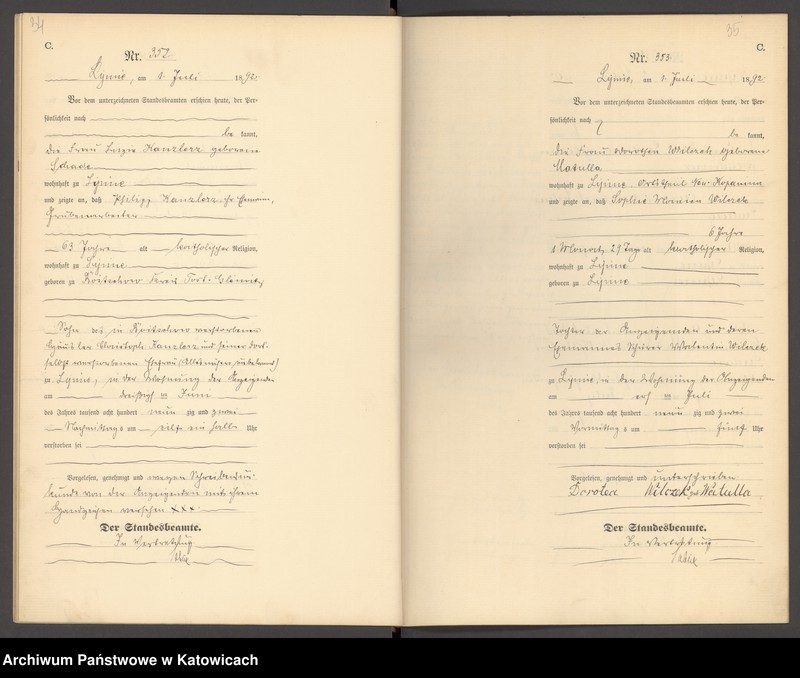 34
C.
Nr. 352.
Lipine, am 1. Juli 1892.
Vor dem unterzeichneten Standesbeamten erschien heute, der Per-
sönlichkeit nach
be kannt,
die Frau Kanzlerz geborene
wohnhaft zu Lipine
und zeigte an, daß Philipp Kanzlerz ihr Ehemann,
Grubenarbeiter
63 Jahre alt katholischer Religion,
wohnhaft zu Lipine
geboren zu Kreis Tost-Gleiwitz
Sohn des in verstorbenen
Häusler Kanzlerz und seiner dort-
selbst verstorbenen Ehefrau
zu Lipine, in der Wohnung der Anzeigenden
am dreißigsten Juni
des Jahres tausend acht hundert neun zig und zwei
Nachmittags um eilf ein halb Uhr
verstorben sei
Vorgelesen, genehmigt und wegen Schreibensun-
kunde von der Anzeigenden mit ihrem
Handzeichen versehen xxx.
Der Standesbeamte.
In Vertretung
35
C.
Nr. 353.
Lipine, am 1. Juli 1892.
Vor dem unterzeichneten Standesbeamten erschien heute, der Per-
sönlichkeit nach
be kannt,
die Frau Dorothea Wilczek geborene
Matulla
wohnhaft zu Lipine Ortstheil
und zeigte an, daß Sophie Wilczek
6 Jahre
1 Monat, 29 Tage alt katholischer Religion,
wohnhaft zu Lipine
geboren zu Lipine
Tochter der Anzeigenden und deren
Ehemannes Valentin Wilczek
zu Lipine, in der Wohnung der Anzeigenden
am Juli
des Jahres tausend acht hundert neun zig und zwei
Vormittags um fünf Uhr
verstorben sei
Vorgelesen, genehmigt und unterschrieben
Dorotea Wilczek Matulla
Der Standesbeamte.
In Vertretung
Archiwum Państwowe w Katowicach